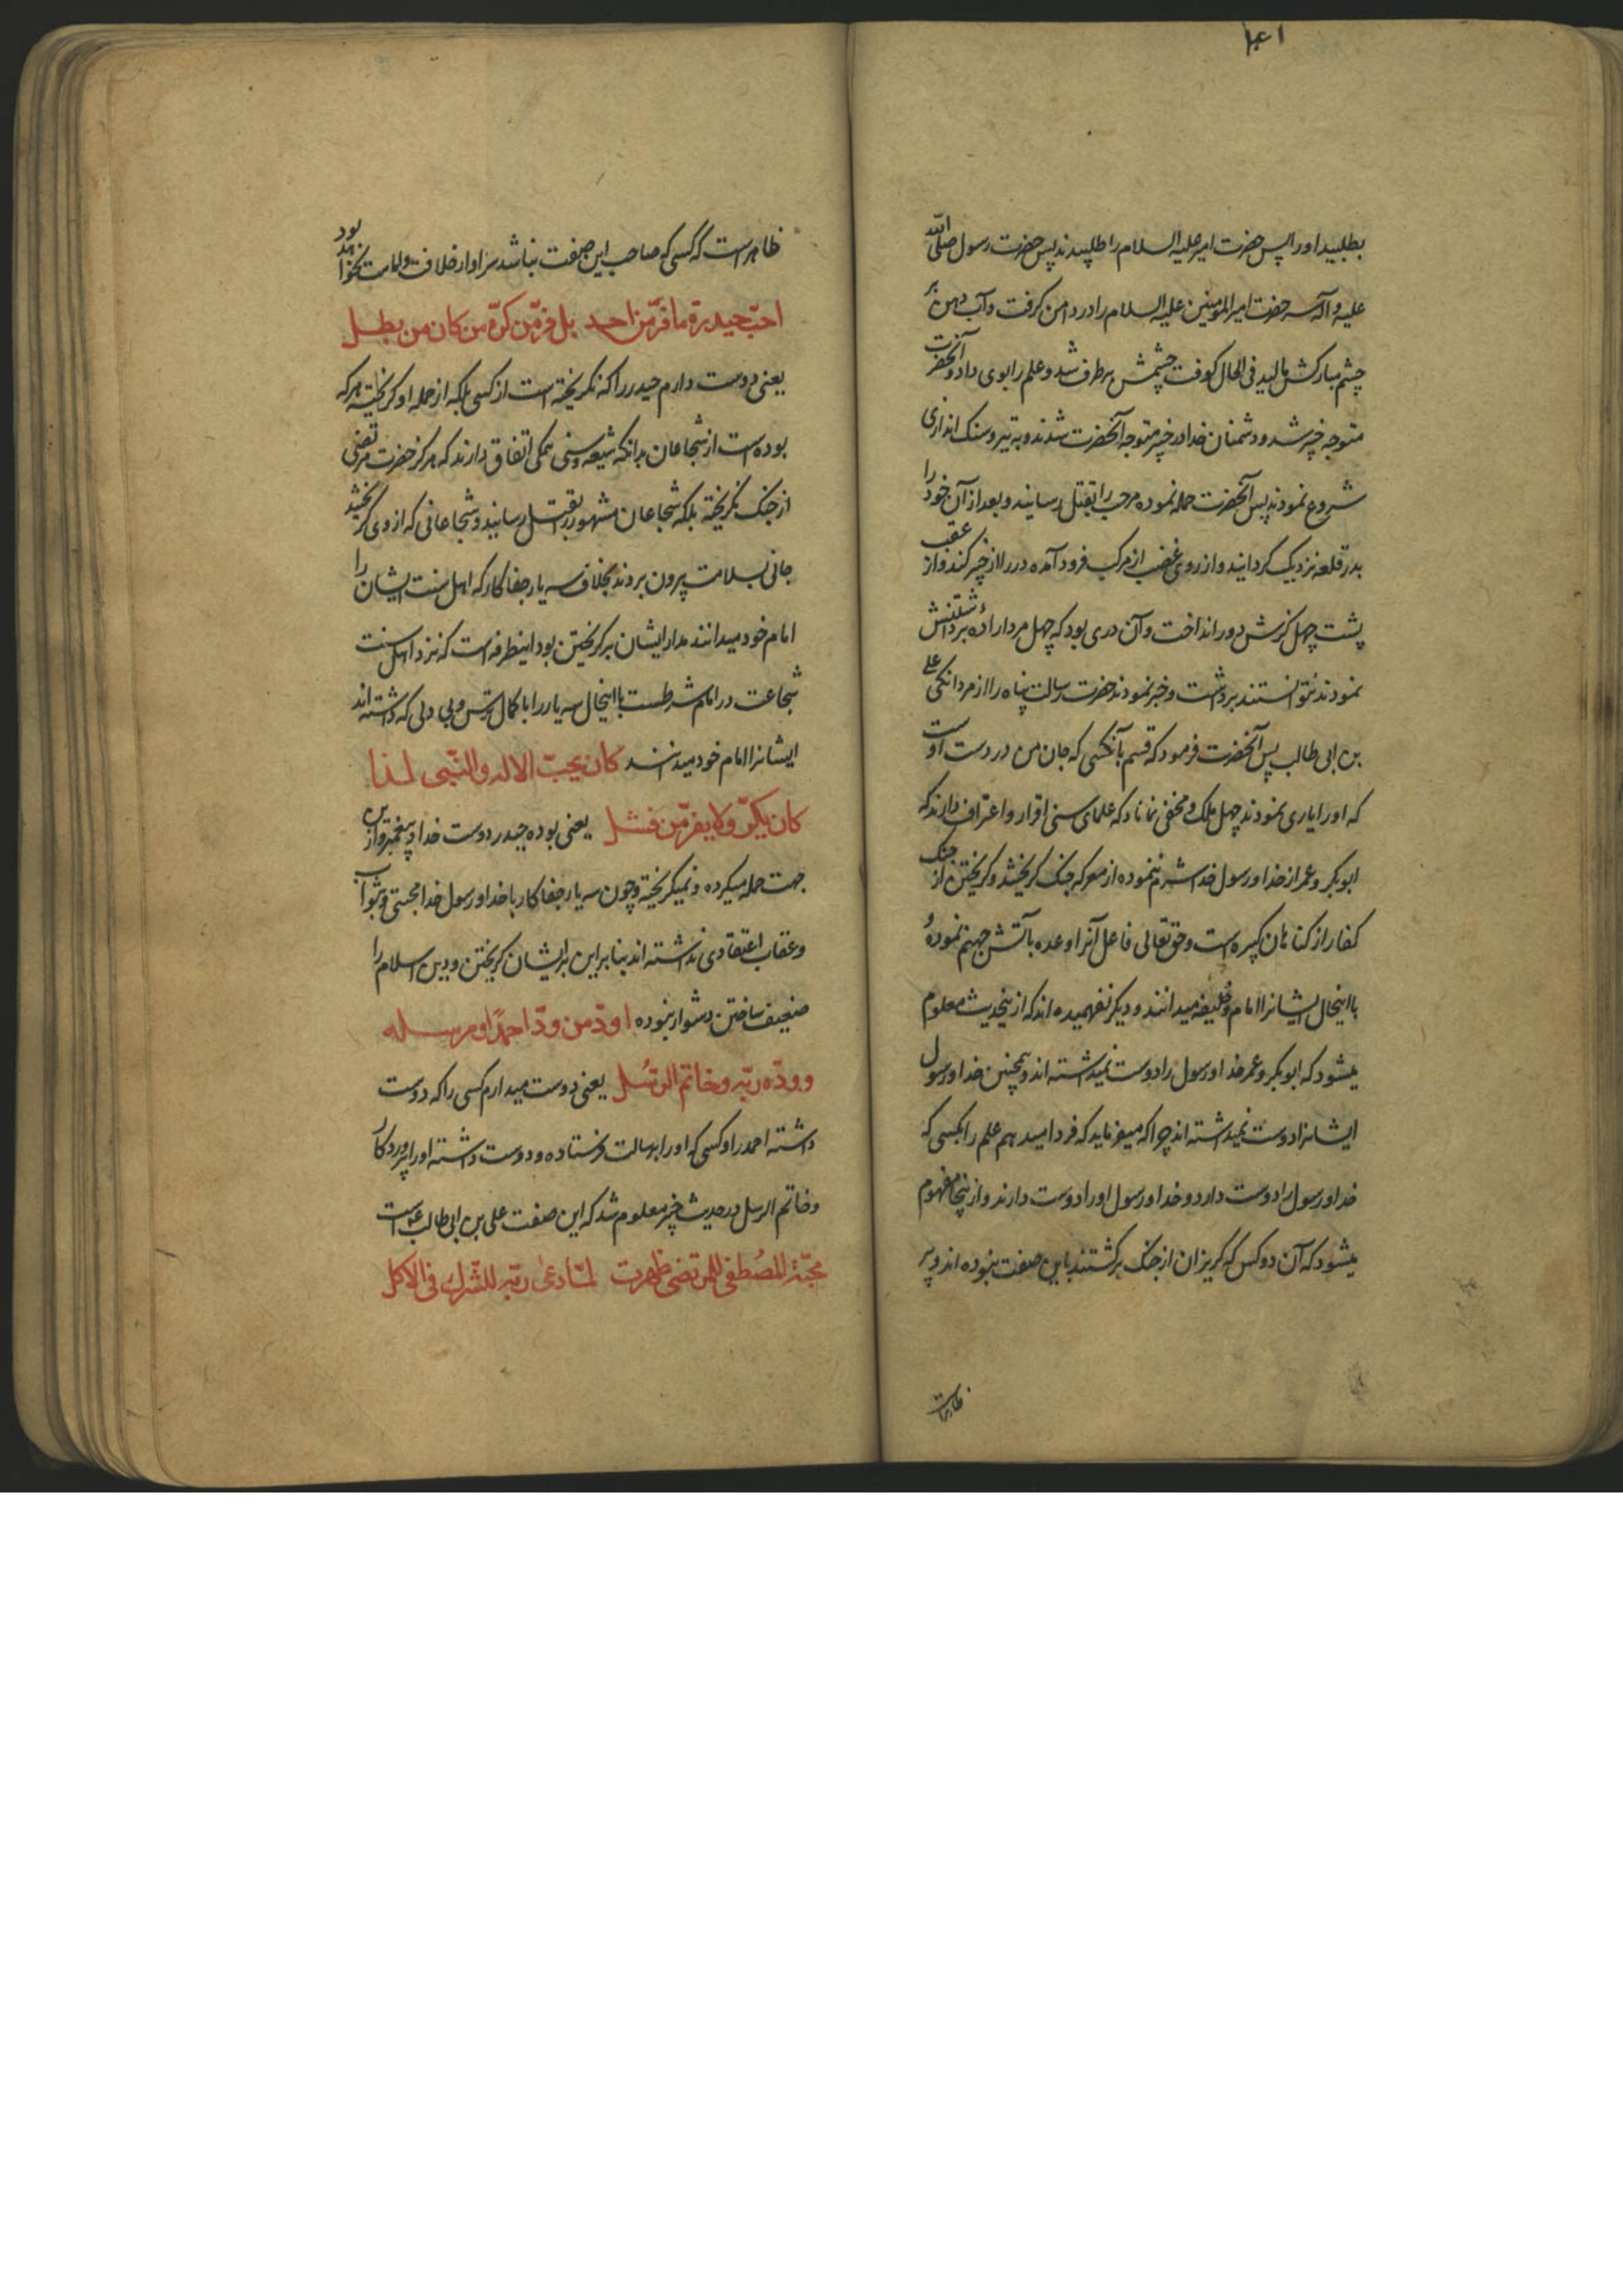 ۱۶۱
بطلبید اورا پس حضرت امیر علیه السلام را طلبیدند پس حضرت رسول صلی الله
علیه و آله سر حضرت امیر المومنین علیه السلام را در دامن کرفت و آب دهن بر
چشم مبارکش مالید فی الحال کوفت چشمش برطرف شد و علم را بوی داد و آنحضرت
متوجه خیبر شد و دشمنان خدا در خیبر متوجه آنحضرت شدند و به تیر و سنک اندازی
شروع نمودند پس آنحضرت حمله نموده مرحب را بقتل رسانید و بعد از آن خود را
بدر قلعه نزدیک کردانید و از روی غضب از مرکب فرود آمده در را از خیبر کند و از عقب
پشت چهل کزش دور انداخت و آن دری بود که چهل مرد اراده برداشتنش
نمودند نتوانستند برداشت و خبر نمودند حضرت رسالت پناه را از مردانکی علی
بن ابی طالب پس آنحضرت فرمود که قسم بآنکسی که جان من در دست اوست
که اورا یاری نمودند چهل ملک و مخفی نماناد که علمای سنی اقرار و اعتراف دارند که
ابوبکر و عمر از خدا و رسول خدا شرم ننموده از معرکه جنک کریختند و کریختن از جنک
کفار از کناهان کبیره است و حق تعالی فاعل آنرا وعده بآتش جهنم نموده
با اینحال ایشانرا امام و خلیفه میدانند و دیکر نفهمیده اند که از اینحدیث معلوم
میشود که ابوبکر و عمر خدا و رسول را دوست نمیداشته اند و همچنین خدا و رسول
ایشانرا دوست نمیداشته اند چرا که میفرماید که فردا میدهم علم را بکسی که
خدا و رسول را دوست دارد و خدا و رسول اورا دوست دارند و از اینجا مفهوم
میشود که آن دو کس که کریزان از جنک برکشتند باین صفت نبوده اند و پر
ظاهرست
ظاهرست که کسی که صاحب این صفت نباشد سزاوار خلافت و امامت نخواهد بود
احبّ حیدرة ما فرّ من احد بل فرّ من کرّه من کان من بطل
یعنی دوست دارم حیدر را که نکریخته است از کسی بلکه از حمله او کریخته هرکه
بوده است از شجاعان بدانکه شیعه و سنی همکی اتفاق دارند که هرکز حضرت مرتضی
از جنک نکریخته بلکه شجاعان مشهور را بقتل رسانید و شجاعانی که از وی کریختند
جانی بسلامت بیرون بردند بخلاف سه یار جفاکار که اهل سنت ایشان را
امام خود میدانند مدار ایشان بر کریختن بود اینطرفه است که نزد اهل سنت
شجاعت در امام شرطست با اینحال سه یار را با کمال ترس و بی دلی که داشته اند
ایشانرا امام خود میدانند کان یحبّ الاله والنّبی لذا
کان یکرّ ولا یفرّ من فشل یعنی بوده حیدر دوست خدا و پیغمبر و از این
جهت حمله میکرده و نمیکریخته و چون سه یار جفاکار با خدا و رسول خدا محبتی و بثواب
و عقاب اعتقادی نداشته اند بنابراین بر ایشان کریختن و دین اسلام را
ضعیف ساختن دشوار نبوده اودّ من ودّ احمدًا و مرسله
و ودّه ربّه و خاتم الرّسُل یعنی دوست میدارم کسی را که دوست
داشته احمد را و کسی که اورا برسالت فرستاده و دوست داشته اورا پروردکار
و خاتم الرسل در حدیث خیبر معلوم شد که این صفت علی بن ابی طالب است
محبّة المصُطفی للمرتضی ظهرت لمّا دعی ربّه للشّرك فی الاکل